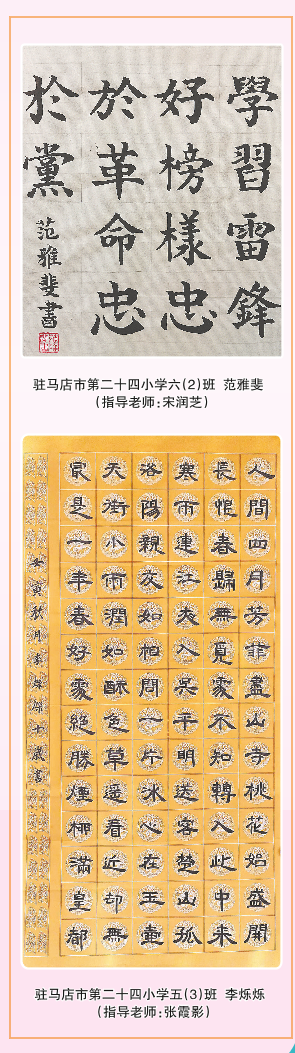 學習雷鋒
好榜樣忠
於革命忠
於黨
范雅斐書
驻马店市第二十四小学六(2)班 范雅斐
(指导老师:宋润芝)
人間四月芳菲盡山寺桃花始盛開
長恨春歸無覓處不知轉入此中来
寒雨連江夜入吴平明送客楚山孤
洛陽親友如相問一片冰心在玉壺
天街小雨潤如酥色草遥看近却無
最是一年春好處絕勝煙柳滿皇都
寅秋月李烁烁十歲書
驻马店市第二十四小学五(3)班 李烁烁
(指导老师:张霞影)